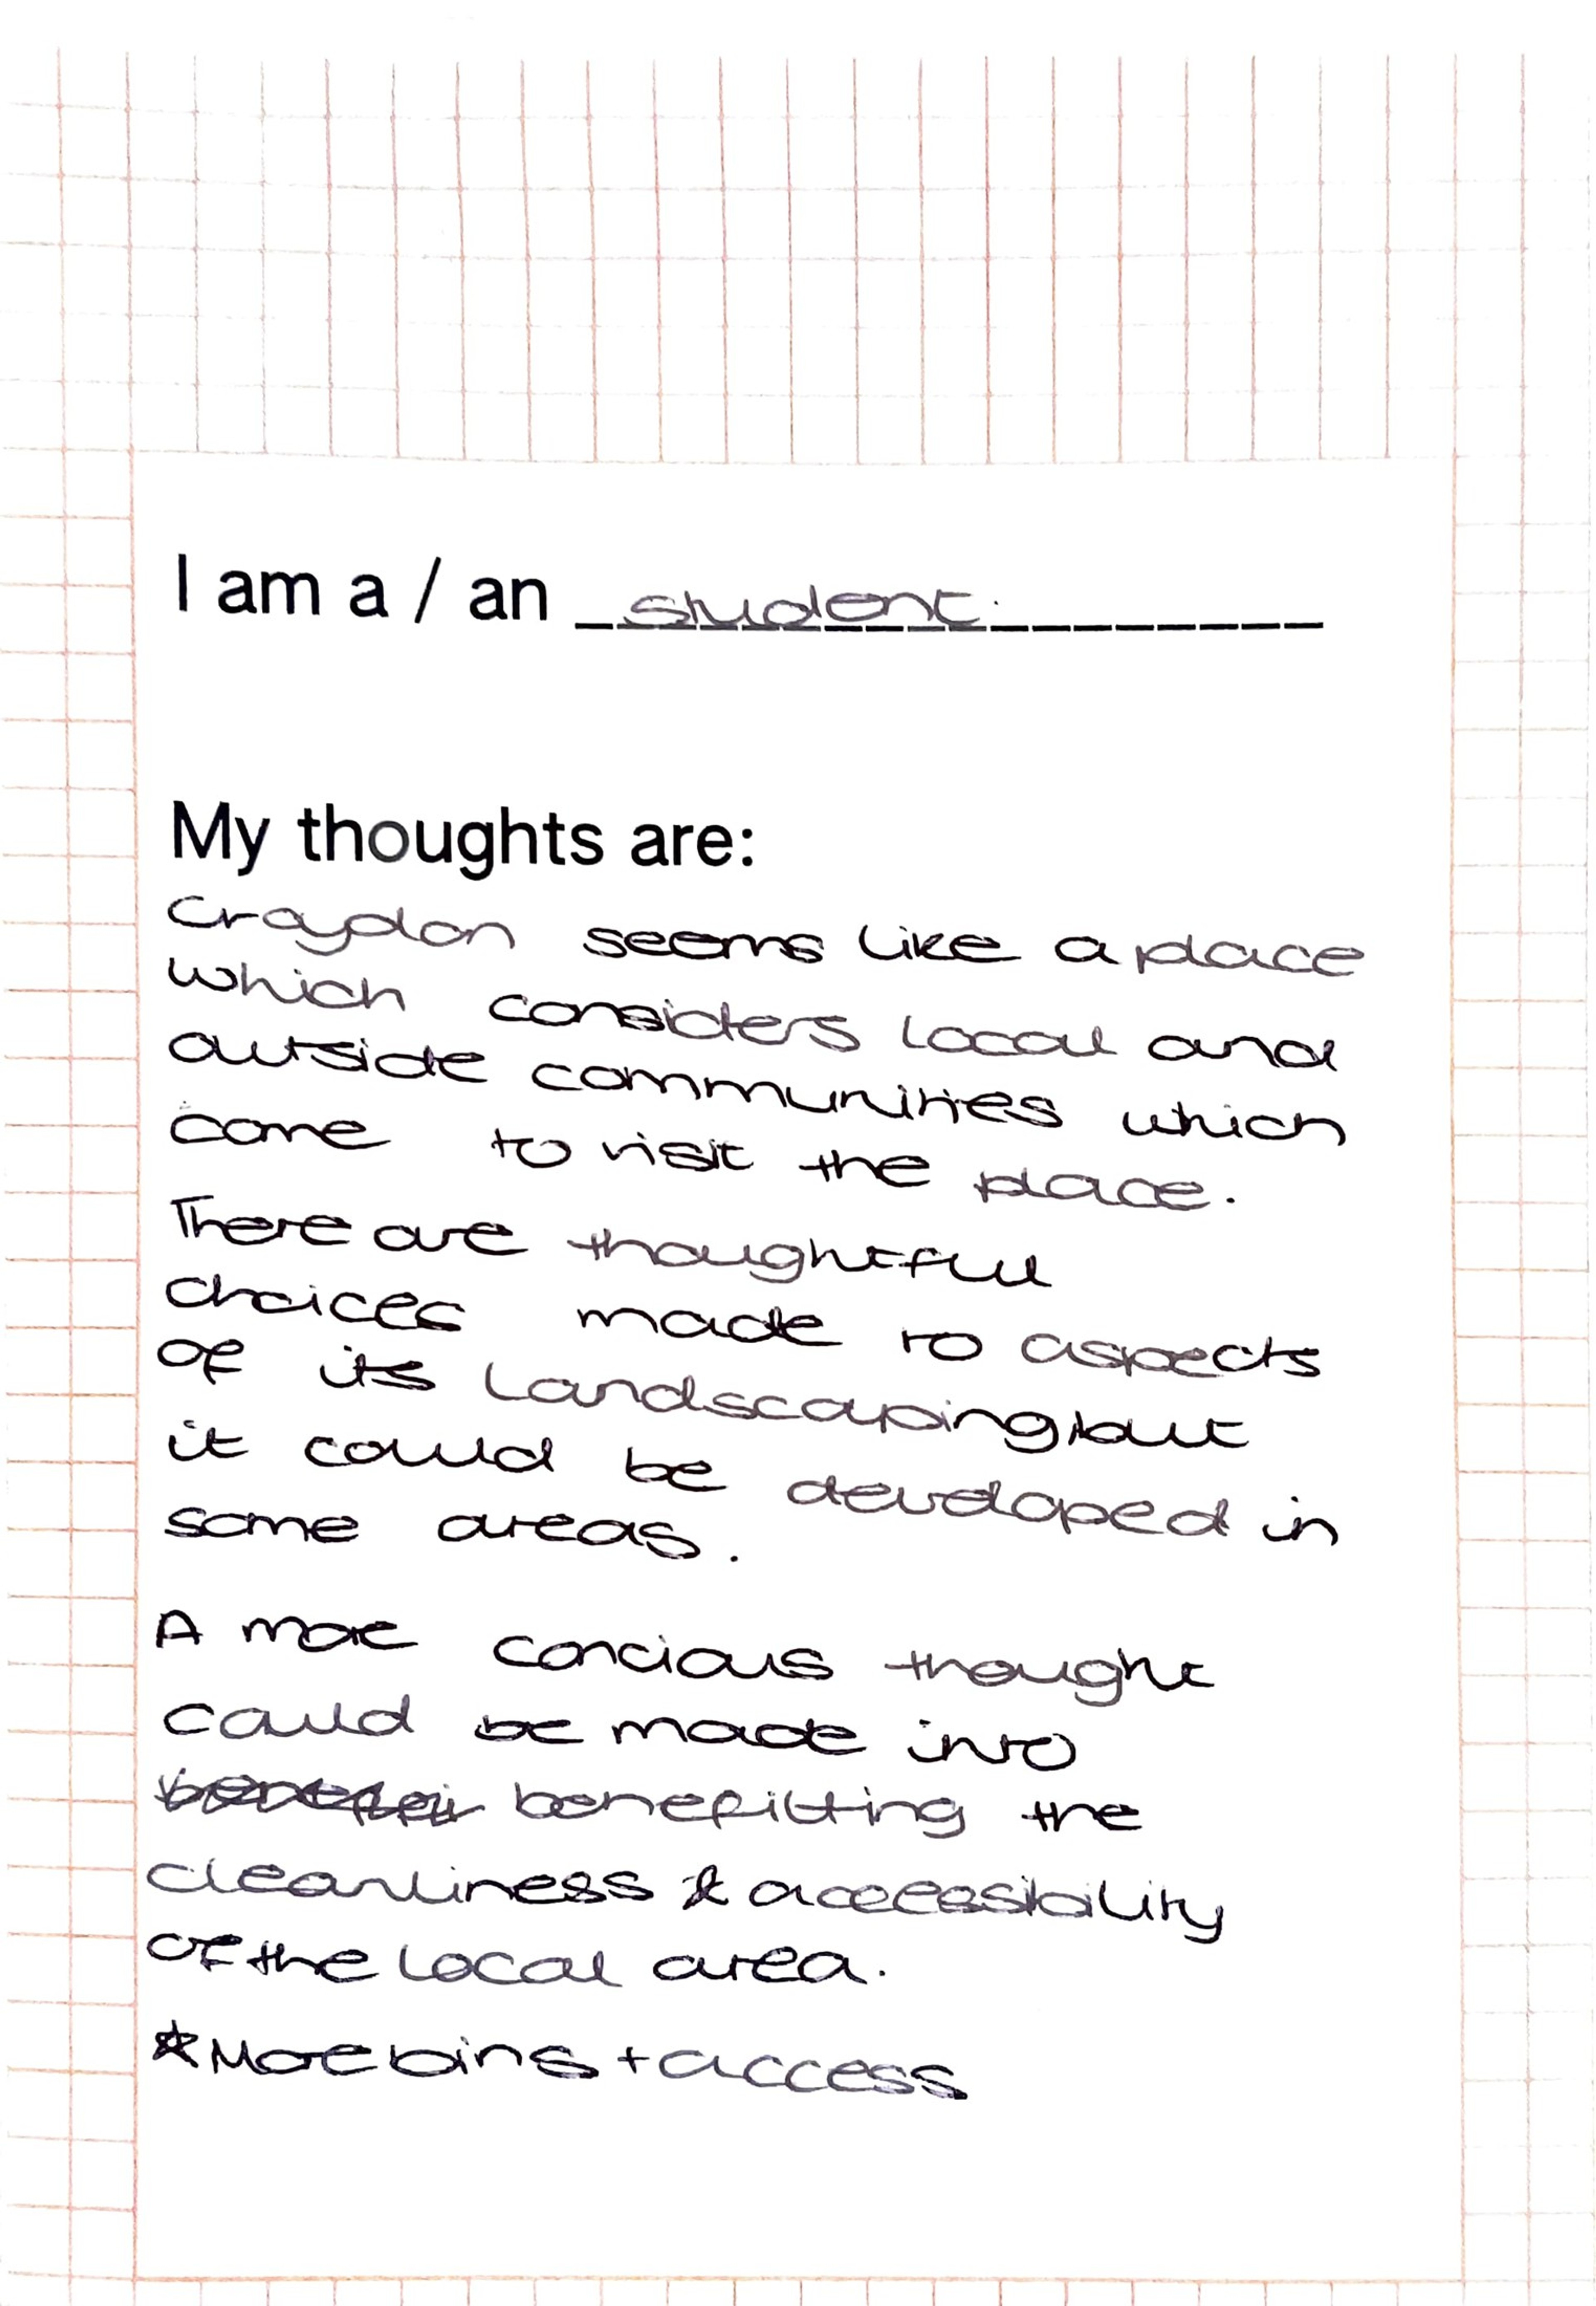 I am a / an student.
My thoughts are:
Croydon seems like a place
which considers local and
outside communities which
come to visit the place.
There are thoughtful
choices made to aspects
of its landscaping but
it could be developed in
some areas.
A more concious thought
could be made into
benefitting the
cleanliness & accessibility
of the local area.
*More bins + access